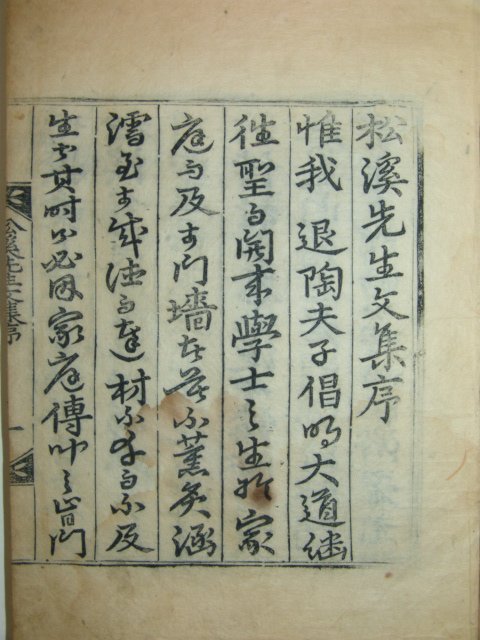 松溪先生文集序
惟我 退陶夫子倡明大道繼
往聖而開來學士之生於家
庭而及于門墻者莫不薰炙涵
濡至于成德而達材不幸而不及
生其時必因家庭傳之旨門
松溪先生文集序 一